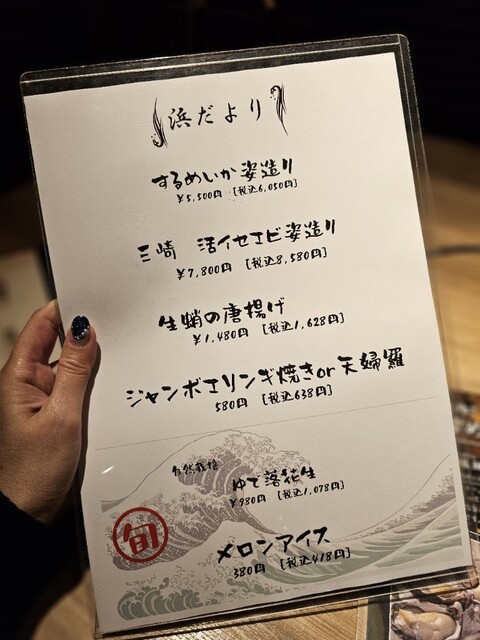 浜だより
するめいか姿造り
¥5,500円 [税込6,050円]
三崎 活イセエビ姿造り
¥7,800円 [税込8,580円]
生蛸の唐揚げ
¥1,480円 [税込1,628円]
ジャンボエリンギ焼きor天婦羅
580円 [税込638円]
自然栽培 ゆで落花生
¥980円 [税込1,078円]
旬
メロンアイス
380円 [税込418円]